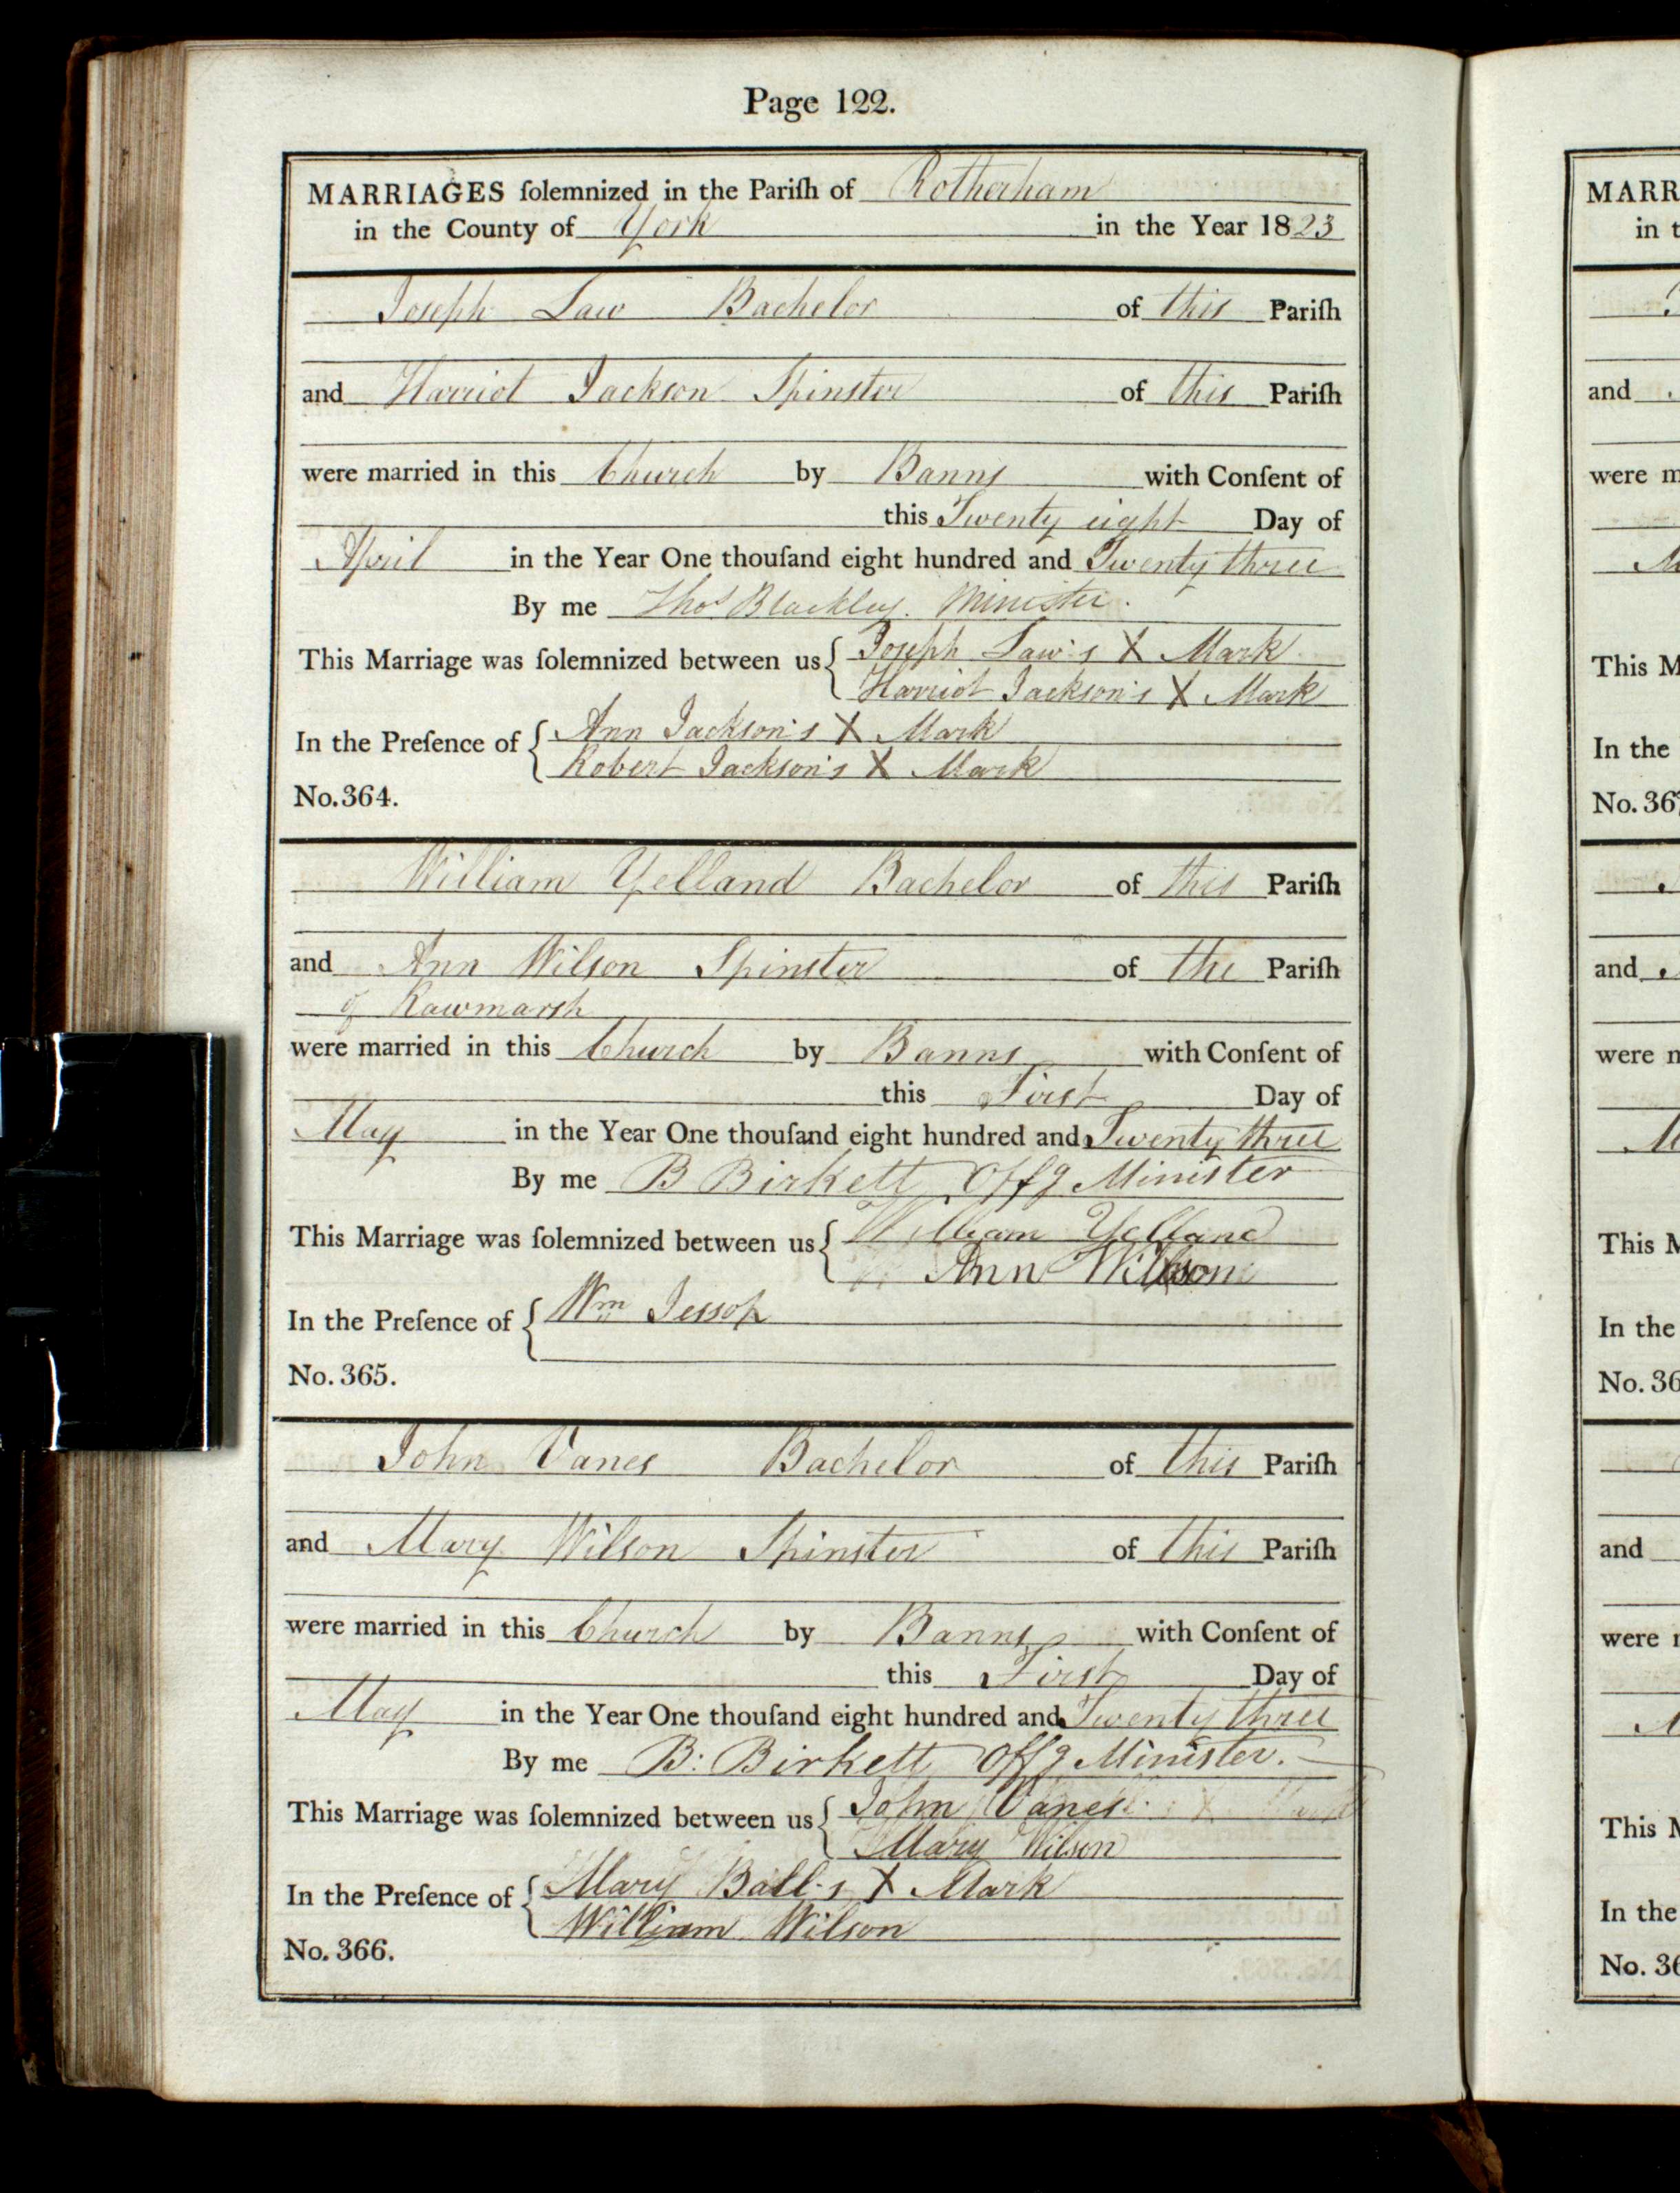 Page 122.
MARRIAGES ſolemnized in the Pariſh of Rotherham
in the County of York in the Year 1823
Joseph Law Bachelor of this Pariſh
and Harriot Jackson Spinster of this Pariſh
were married in this Church by Banns with Conſent of
this Twenty eight Day of
April in the Year One thouſand eight hundred and Twenty three
By me Thos Blackley. Minister.
This Marriage was ſolemnized between us { Joseph Law's X Mark
Harriot Jackson's X Mark
In the Preſence of { Ann Jackson's X Mark
Robert Jackson's X Mark
No. 364.
William Yelland Bachelor of this Pariſh
and Ann Wilson Spinster of the Pariſh
of Rawmarsh
were married in this Church by Banns with Conſent of
this First Day of
May in the Year One thouſand eight hundred and Twenty three
By me B Birkett Offg Minister
This Marriage was ſolemnized between us { William Yelland
Ann Wilson
In the Preſence of { Wm Jessop
No. 365.
John Vanes Bachelor of this Pariſh
and Mary Wilson Spinster of this Pariſh
were married in this Church by Banns with Conſent of
this First Day of
May in the Year One thouſand eight hundred and Twenty three
By me B: Birkett Offg Minister.
This Marriage was ſolemnized between us { John Vanes
Mary Wilson
In the Preſence of { Mary Ball's X Mark
William Wilson
No. 366.
MARR
in t
and
were m
This M
In the
No. 36
and
were n
This M
In the
No. 36
and
were
This M
In the
No. 36